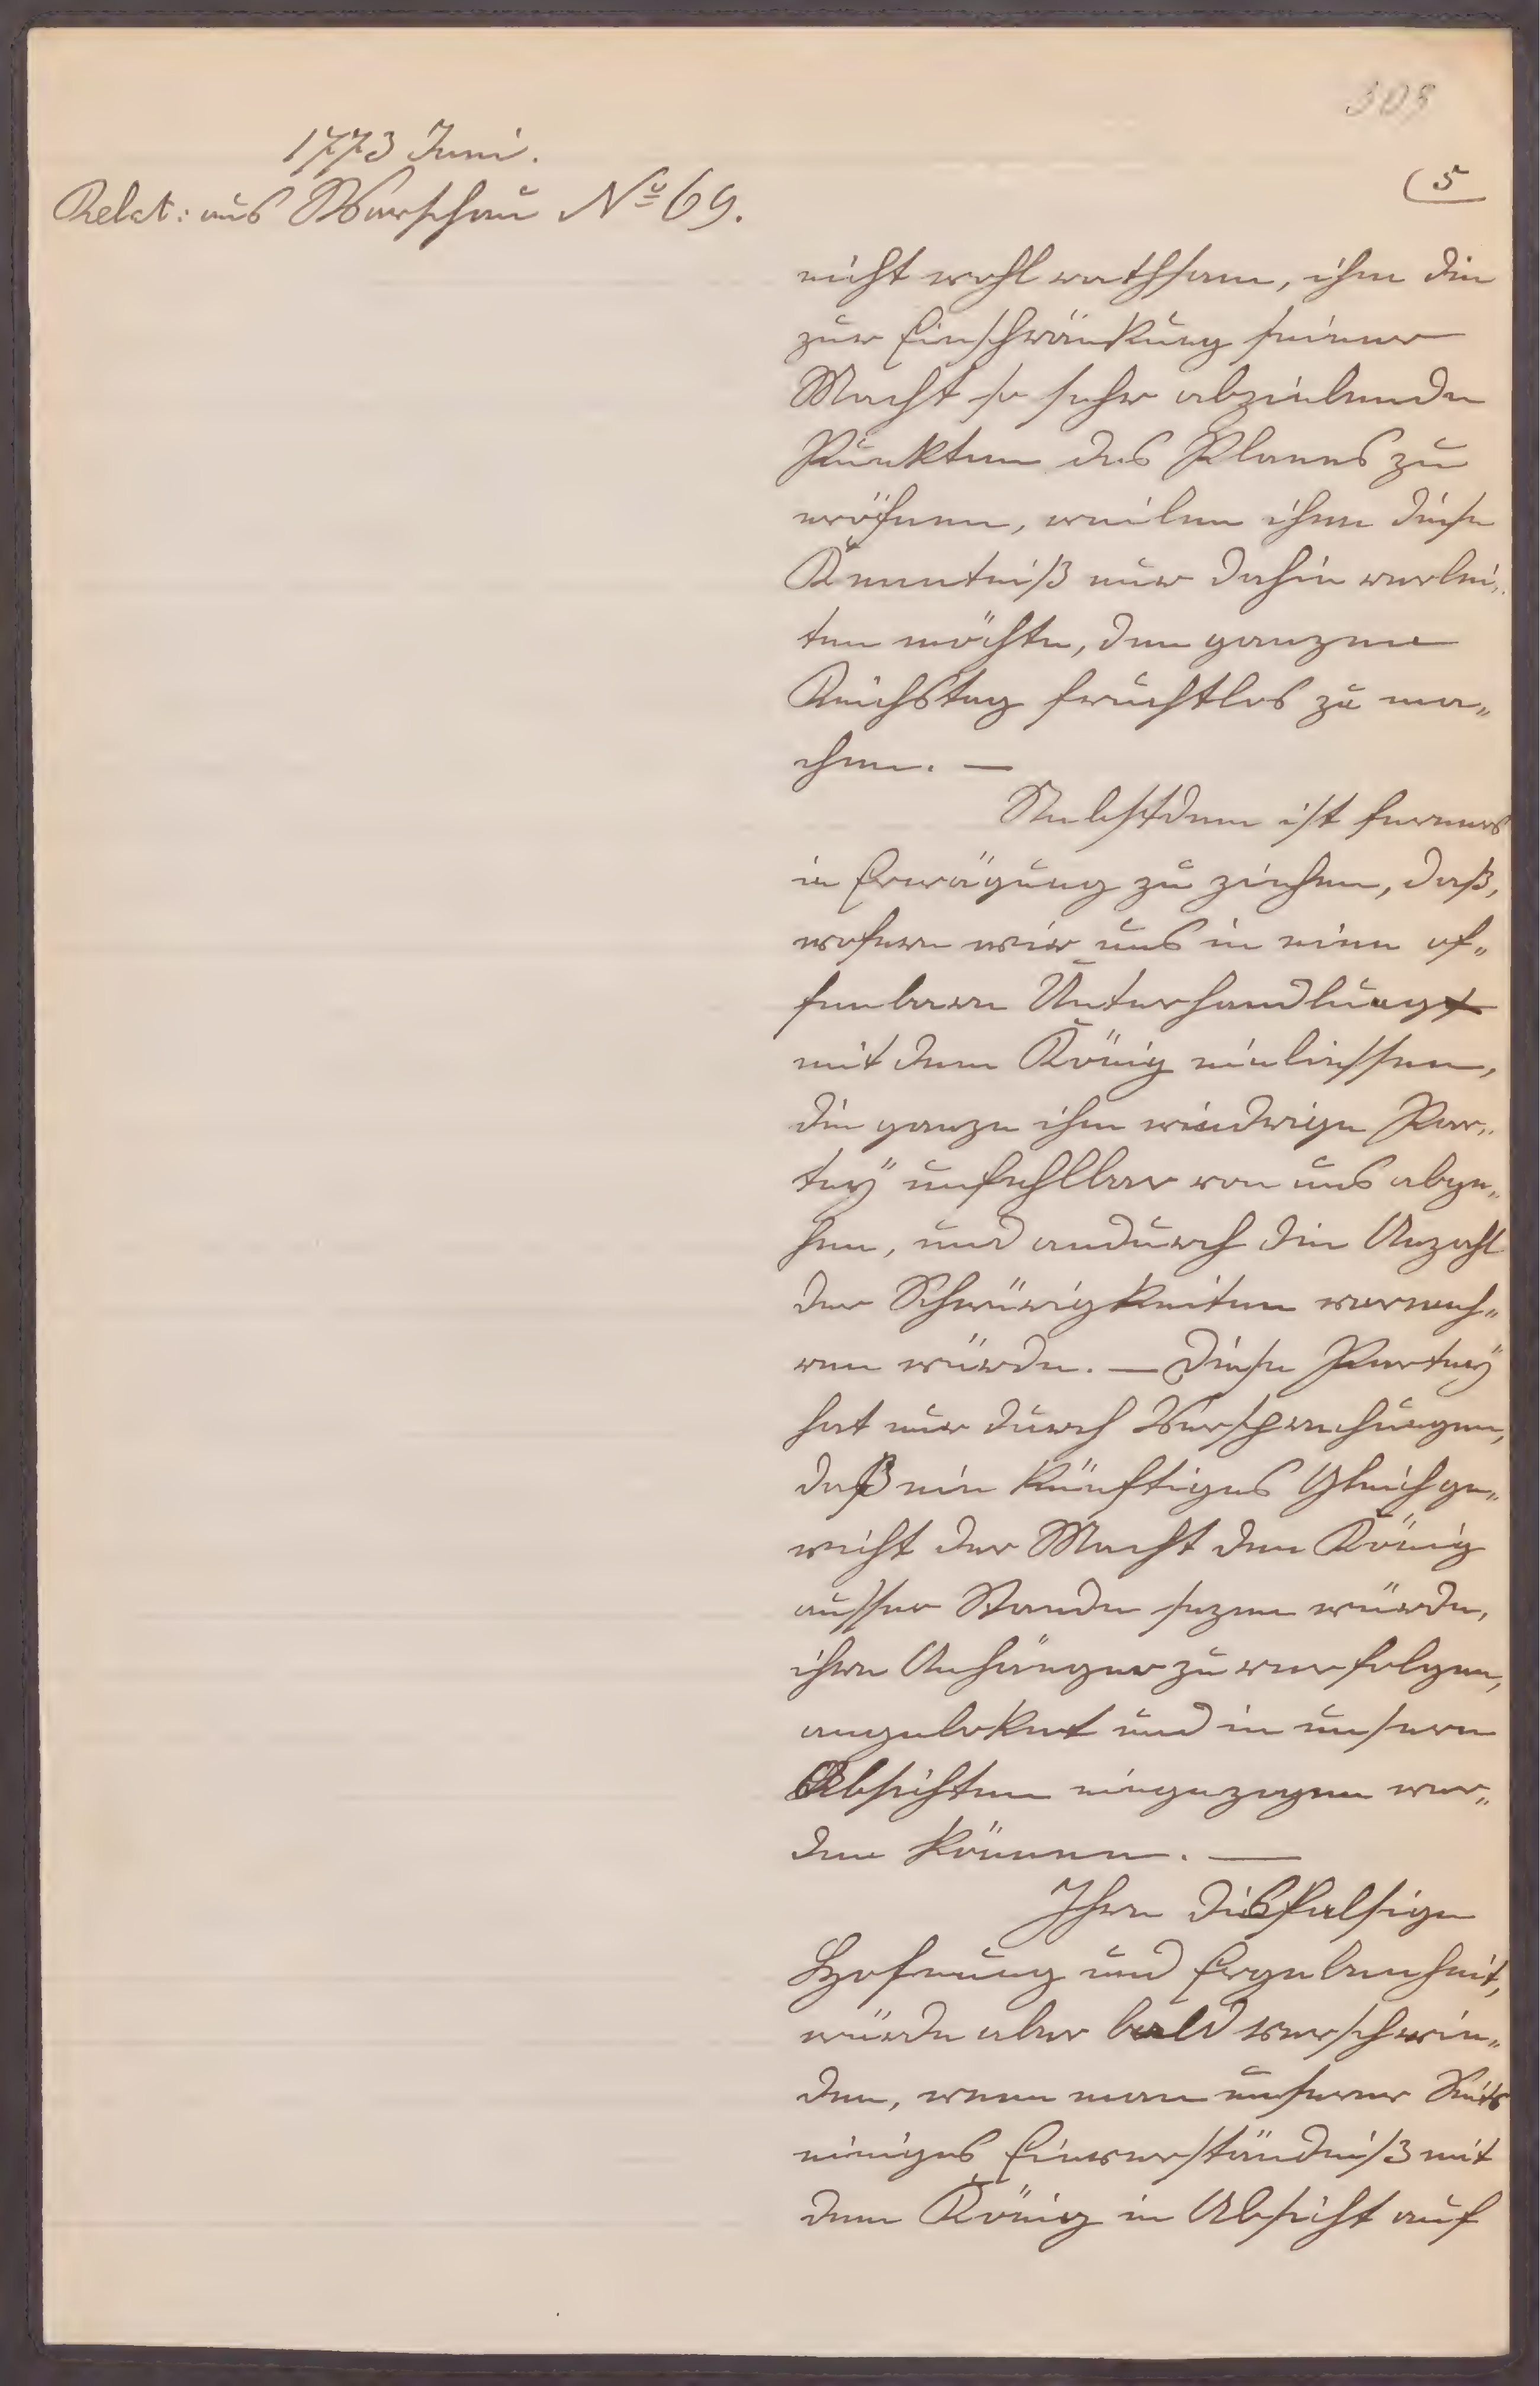 303
1773 Juni.
Relat: aus Warschau No 69.
(5
nicht wohl rathsam, ihm die
zur Einschränkung seiner
Macht so sehr abzielende
Punkten des Planes zu
eröfnen, weilen ihm diese
Kenntniß nur dahin verlei„
ten möchte, den ganzen
Reichstag fruchtlos zu ma„
chen. —
Nebstdem ist ferners
in Erwägung zu ziehen, daß,
wofern wir uns in eine of„
fenbare Unterhandlung
mit dem König einliessen,
die ganze ihm wiedrige Par„
tey unfehlbar von uns abge„
hen, und andurch die Anzahl
der Schwürigkeiten vermeh„
ren würde. — Diese Partey
hat nur durch Versprechungen,
daß ein künftiges Gleichge„
wicht der Macht den König
ausser Stande sezen würde,
ihre Anhänger zu verfolgen,
angeloket und in unsere
Absichten eingezogen wer„
den können. —
Ihre disfalsige
Hofnung und Ergebenheit,
würde aber bald verschwin„
den, wenn man unserer Seits
einiges Einverständniß mit
dem König in Absicht auf